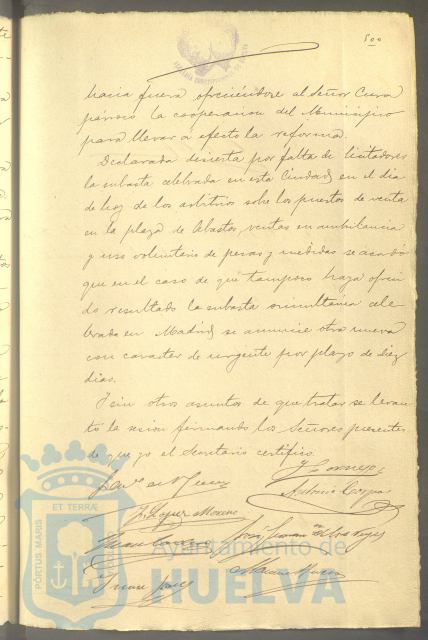 500
hacia fuera ofreciendose al Señor Cura
párroco la cooperacion del Municipio
para llevar á efecto la reforma.
Declarada desierta por falta de licitadores
la subasta celebrada en esta Ciudad en el dia
de hoy de los arbitrios sobre los puestos de venta
en la plaza de Abastos, ventas en ambulancia
y uso voluntario de pesas y medidas se acordó
que en el caso de que tampoco haya ofreci
do resultado la subasta simultánea cele
brada en Madrid, se anuncie otra nueva
con caracter de urgente por plazo de diez
dias.
Y sin otros asuntos de que tratar se levan
tó la sesion firmando los Señores presentes
de que yo el Secretario certifico.
Antonio
López Moreno
PORTUS MARIS
ET TERRA
Ayuntamiento de
HUELVA